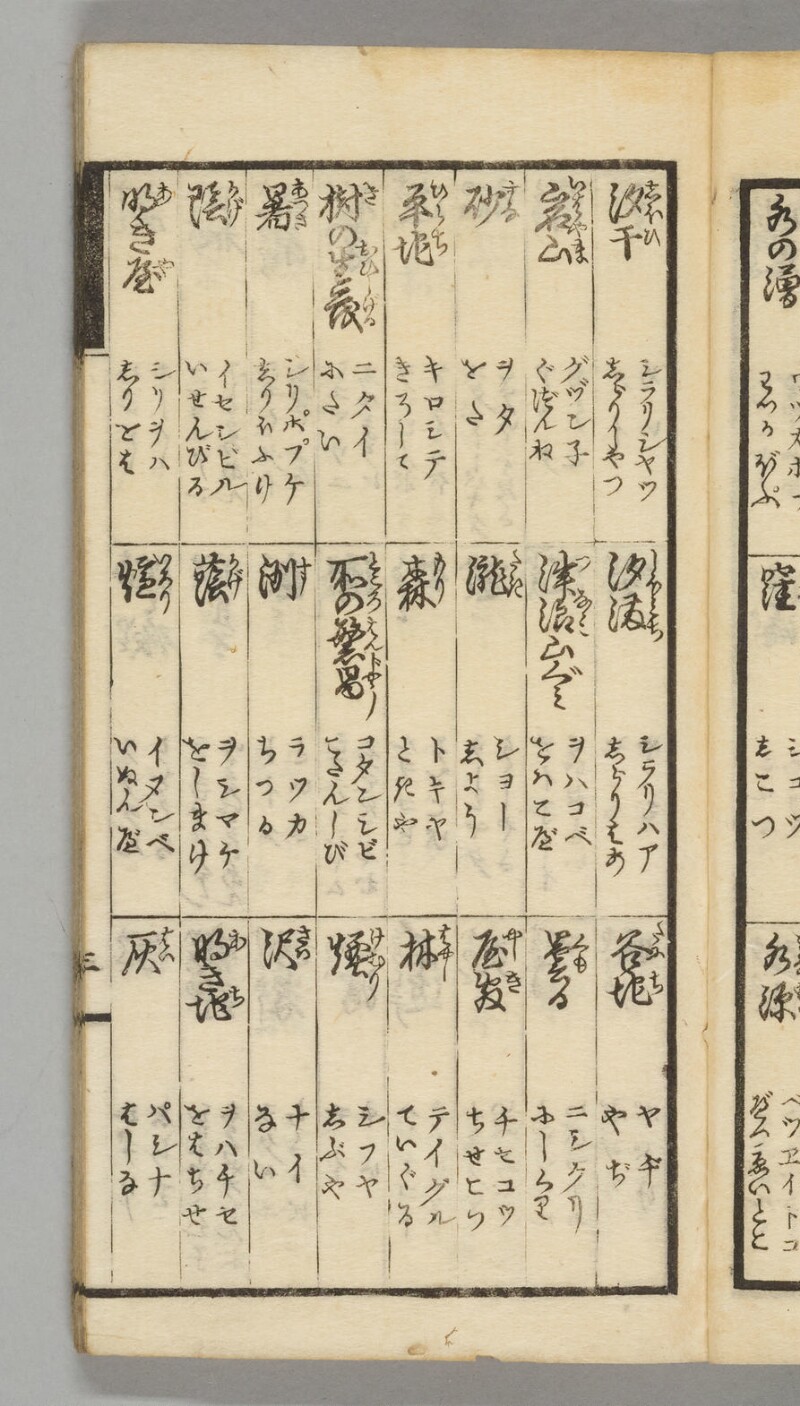 水の溜
窪
シコツ
しこつ
水源
ベツヱイトコ
べつゑいとこ
汐干
しほひ
シラリシヤツ
しらりしやつ
いはやま
グヅン子
ぐづんね
砂
すな
ヲタ
をた
平地
ひらち
キロシテ
きろして
樹の生茂
き おひしげる
ニタイ
にたい
暑
あつき
シリポプケ
しりほふけ
陰
かげ
イセンビル
いせんびる
明き屋
あ や
シリヲハ
しりをは
汐満
しほみち
シラリハア
しらりはあ
ヲハコベ
をはこべ
滝
たき
シヨー
しよう
森
もり
トキヤ
ときや
所の繁昌
ところ はんじやう
コタンシビ
こたんしび
洲
す
ラツカ
らつか
蔭
かげ
ヲシマケ
をしまけ
爐
いろり
イヌンベ
いぬんべ
谷地
やち
ヤヂ
やぢ
曇る
くも
ニシクリ
にしくり
屋敷
やしき
チセコツ
ちせこつ
林
はやし
テイグル
ていぐる
煙
けむり
シフヤ
しぶや
沢
さは
ナイ
ない
明き地
あ ち
ヲハチセ
をはちせ
灰
はい
パシナ
はしな
三